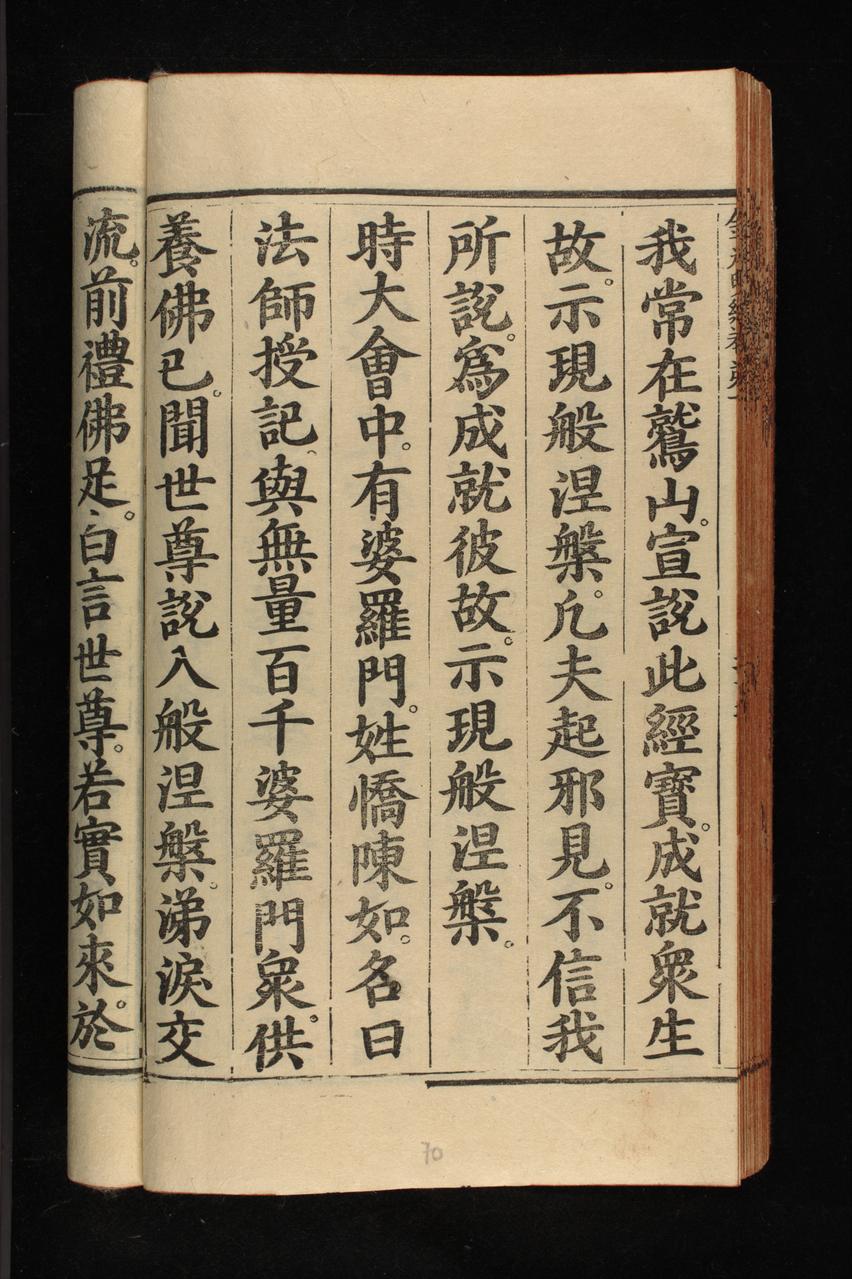 我常在鷲山。宣說此經寶。成就衆生
故。示現般涅槃。凡夫起邪見。不信我
所說。爲成就彼故。示現般涅槃。
時大會中。有婆羅門。姓憍陳如。名曰
法師授記、與無量百千婆羅門衆。供
養佛已。聞世尊說入般涅槃。涕淚交
流。前禮佛足。白言世尊。若實如來。於
70